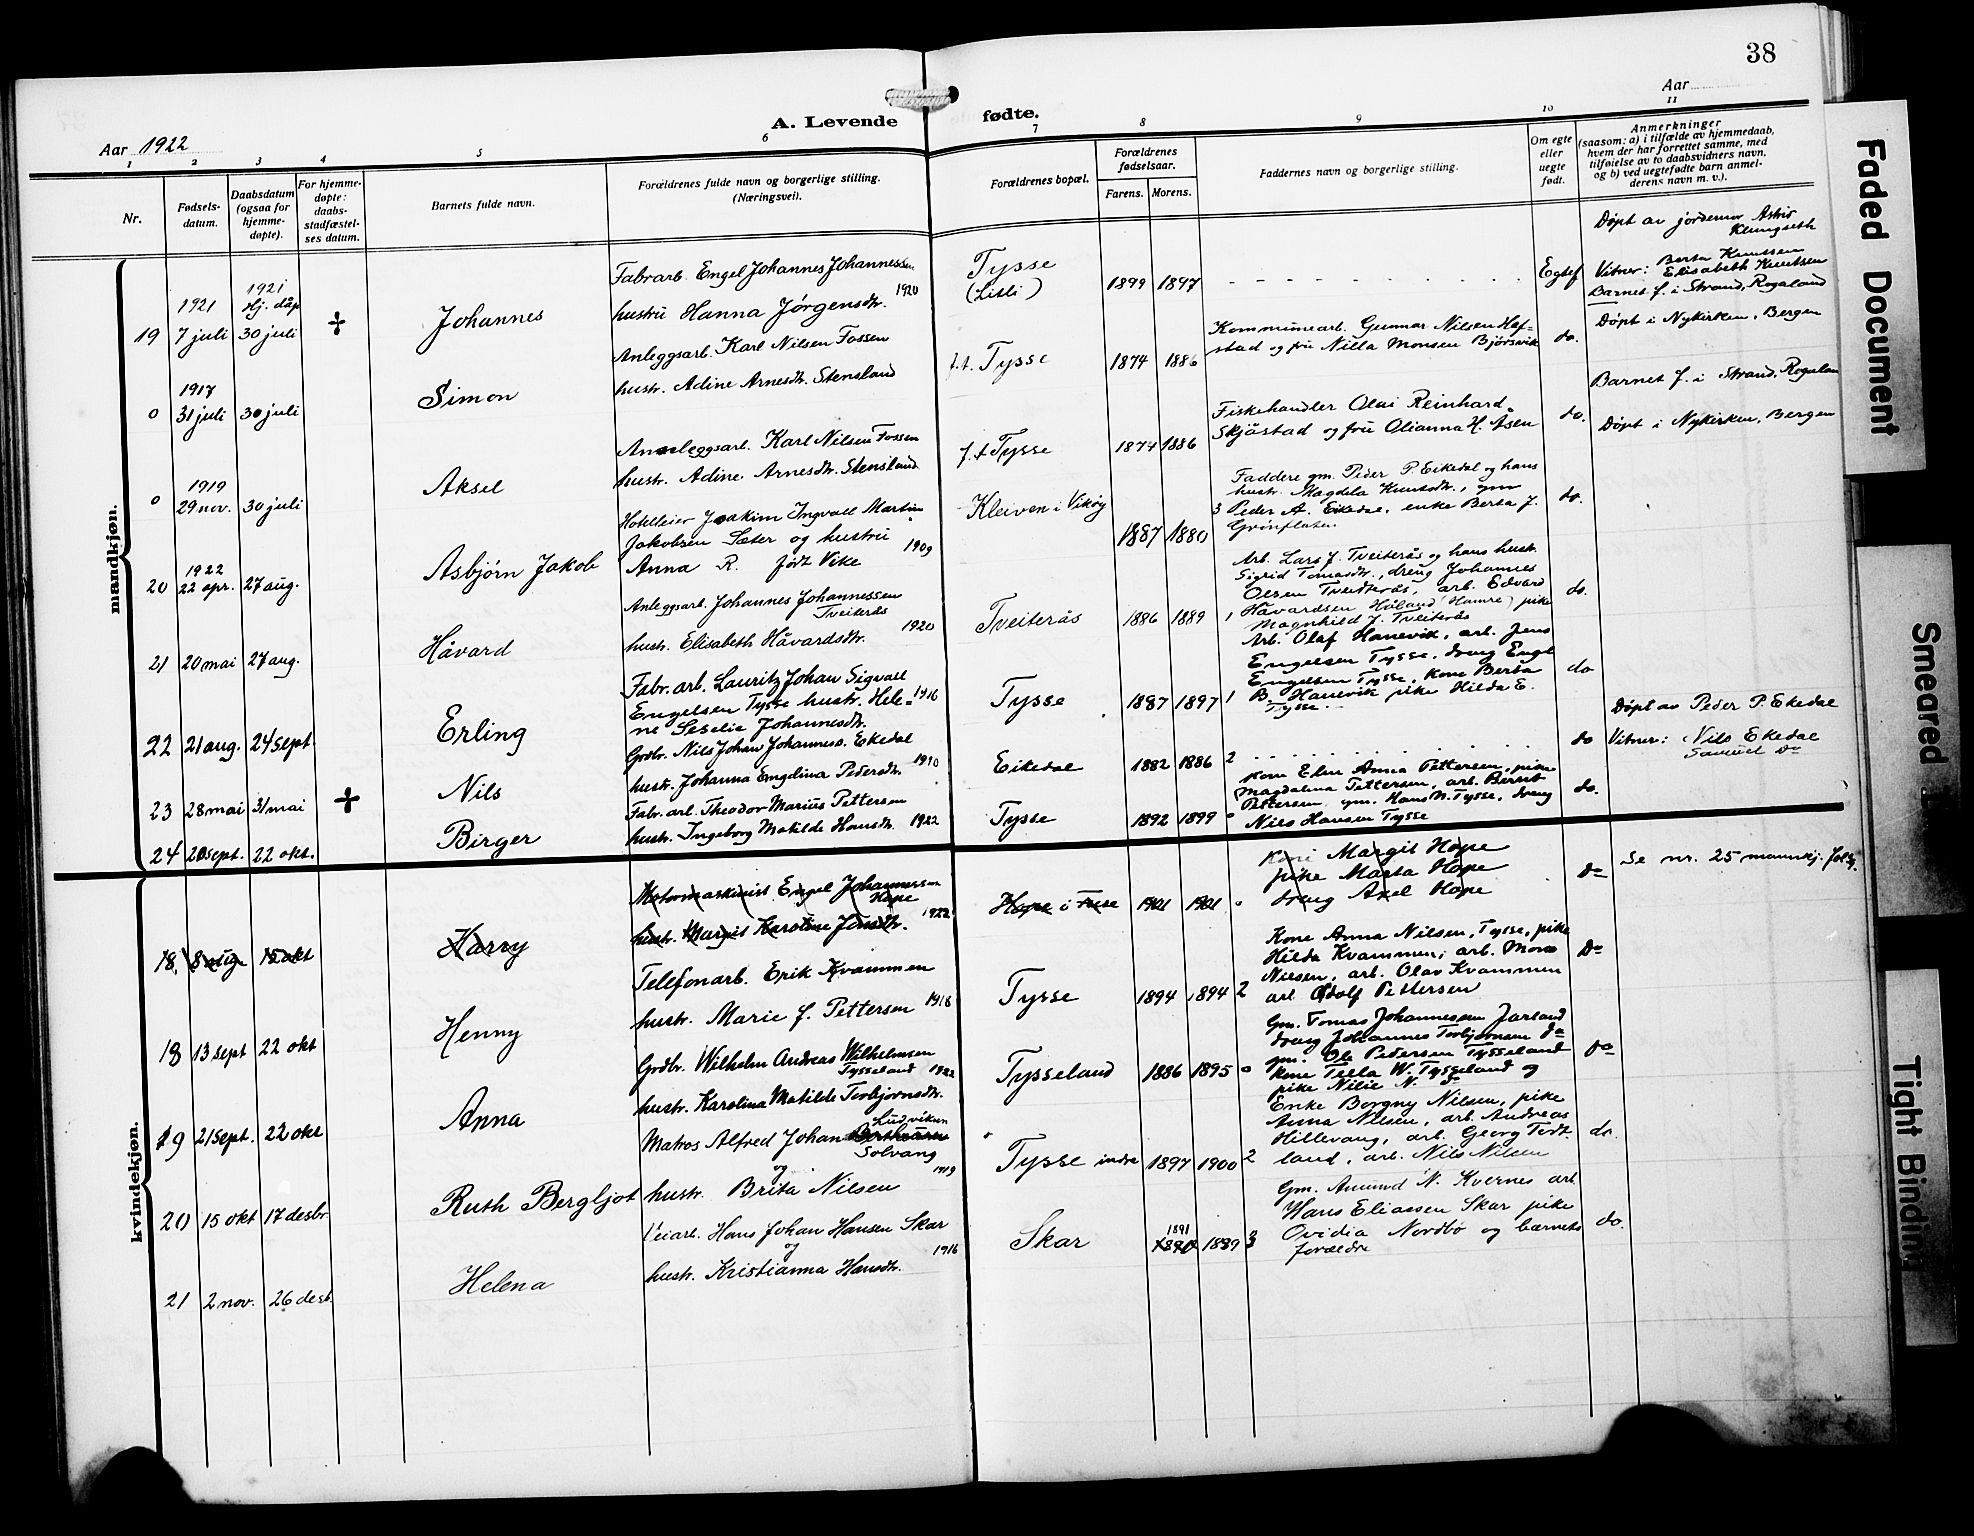 38
A. Levende fødte.
Aar 1922
Aar
1 2 3 4 5 6 7 8 9 10 11
Nr.
Fødsels-
datum.
Daabsdatum
(ogsaa for
hjemme-
døpte).
For hjemme-
døpte:
daabs-
stadfæstel-
ses datum.
Barnets fulde navn.
Forældrenes fulde navn og borgerlige stilling.
(Næringsvei).
Forældrenes bopæl.
Forældrenes
fødselsaar.
Farens. Morens.
Faddernes navn og borgerlige stilling.
Om egte
eller
uegte
født.
Anmerkninger
(saasom: a) i tilfælde av hjemmedaab,
hvem der har forrettet samme, med
tilføielse av to daabsvidners navn,
og b) ved uegtefødte barn anmel-
derens navn m. v.).
mandkjøn.
19
1921
7 juli
1921
Hj. dåp
30 juli
Johannes
Fabrarb. Engel Johannes Johannessen
hustru Hanna Jørgensdtr. 1920
Tysse
(Lilli)
1899 1897
Egtef
Døpt av jordemor Astrid
Klungseth
Vitner: Berta Knutsen
Elisabeth Knutsen
0
1917
31 juli
30 juli
Simon
Anleggsarb. Karl Nilsen Fossen
hustr. Adine Arnesdtr. Stensland
f.t. Tysse
1874 1886
Kommunearb. Gunnar Nilsen Haf=
stad og fru Nilla Monsen Bjørsvik
do.
Barnet f. i Strand, Rogaland
Døpt i Nykirken, Bergen
0
1919
29 nov.
30 juli
Aksel
Anleggsarb. Karl Nilsen Fossen
hustr. Adine Arnesdtr. Stensland
f.t Tysse
1874 1886
Fiskehandler Olai Reinhard
Skjåstad og fru Olianna H. Åsen
do.
Barnet f. i Strand, Rogaland
Døpt i Nykirken, Bergen
20
1922
22 apr.
27 aug.
Asbjørn Jakob
Hotelleier Joakim Ingvall Martin
Jakobsen Sæter og hustru
Anna R. født Vike 1909
Kleiven i Vikøy
1887 1880
3
Faddere gm. Peder P. Eikedal og hans
hustr. Magdela Knutsdtr., gm
Peder A. Eikedal, enke Berta J.
Grønflaten.
do.
21
20 mai
27 aug.
Håvard
Anleggsarb. Johannes Johannessen
Tveiterås
hustr. Elisabeth Håvardsdtr. 1920
Tveiterås
1886 1889
1
Arb. Lars J. Tveiterås og hans hustr.
Sigrid Tomasdtr., dreng Johannes
Olsen Tveiterås, arb. Edvard
Håvardsen Håland (Hamre) pike
Magnhild J. Tveiterås
do.
22
21 aug.
24 sept.
Erling
Fabr. arb. Lauritz Johan Sigvall
Engelsen Tysse hustr. Hele= 1916
ne Seselie Johannesdtr.
Tysse
1887 1897
1
Arb. Olaf Hanevik, arb. Jens
Engelsen Tysse, dreng Engel
Engelsen Tysse, kone Berta
B. Hanevik pike Hilda E.
Tysse.
do
23
28 mai
31 mai
Nils
Grdbr. Nils Johan Johanness. Ekedal
hustr. Johanna Engelina Pedersdtr. 1910
Eikedal
1882 1886
2
do
Døpt av Peder P. Ekedal
Vitner: Nils Ekedal
Samuel Do
24
20 sept.
22 okt.
Birger
Fabr. arb. Theodor Marius Pettersen
hustr. Ingeborg Matilde Hansdtr. 1922
Tysse
1892 1899
0
Kone Elen Anna Pettersen, pike
Magdalena Pettersen, arb. Bernt
Pettersen, gm. Hans N. Tysse, dreng
Nils Hansen Tysse
do.
kvindekjøn.
18.
8 aug.
15 okt
Harry
Motormaskinist Engel Johannessen
Hope
hustr. Margit Karoline Jensdtr. 1922
Hope i Fuse
1901 1901
0
Kone Margit Hope
pike Marta Hope
dreng Axel Hope
do
Se nr. 25 mannkj. følg.
18
13 sept
22 okt
Henny
Telefonarb. Erik Kvammen
hustr. Marie f. Pettersen 1918
Tysse
1894 1894
2
Kone Anna Nilsen, Tysse, pike
Hilda Kvammen, arb. Mons
Nilsen, arb. Olav Kvammen
arb. Adolf Pettersen
Do
19
21 sept.
22 okt
Anna
Grdbr. Wilhelm Andreas Wilhelmsen
Tysseland 1922
hustr. Karolina Matilde Torbjørnsdtr.
Tysseland
1886 1895
0
Gm. Tomas Johannessen Jarland
dreng Johannes Torbjørnsen do
gm. Ole Pedersen Tysseland
kone Tella W. Tysseland og
pike Nilie N. do
do
20
15 okt
17 desbr.
Ruth Bergljot
Matros Alfred Johan Ludviksen
Solvang
og 1919
hustr. Brita Nilsen
Tysse indre
1897 1900
2
Enke Borgny Nilsen, pike
Anna Nilsen, arb. Andreas
Hillevang, arb. Georg Tvedt-
land, arb. Nils Nilsen
do.
21
2 nov.
26 desb.
Helena
Veiarb. Hans Johan Hansen Skar
og 1916
hustr. Kristianna Hansdtr.
Skar
1891
1890 1889
3
Gm. Amund N. Kvernes arb.
Hans Eliassen Skar pike
Ovidia Nordbø og barnets
forældre
do.
Faded Document
Smeared
Tight Binding